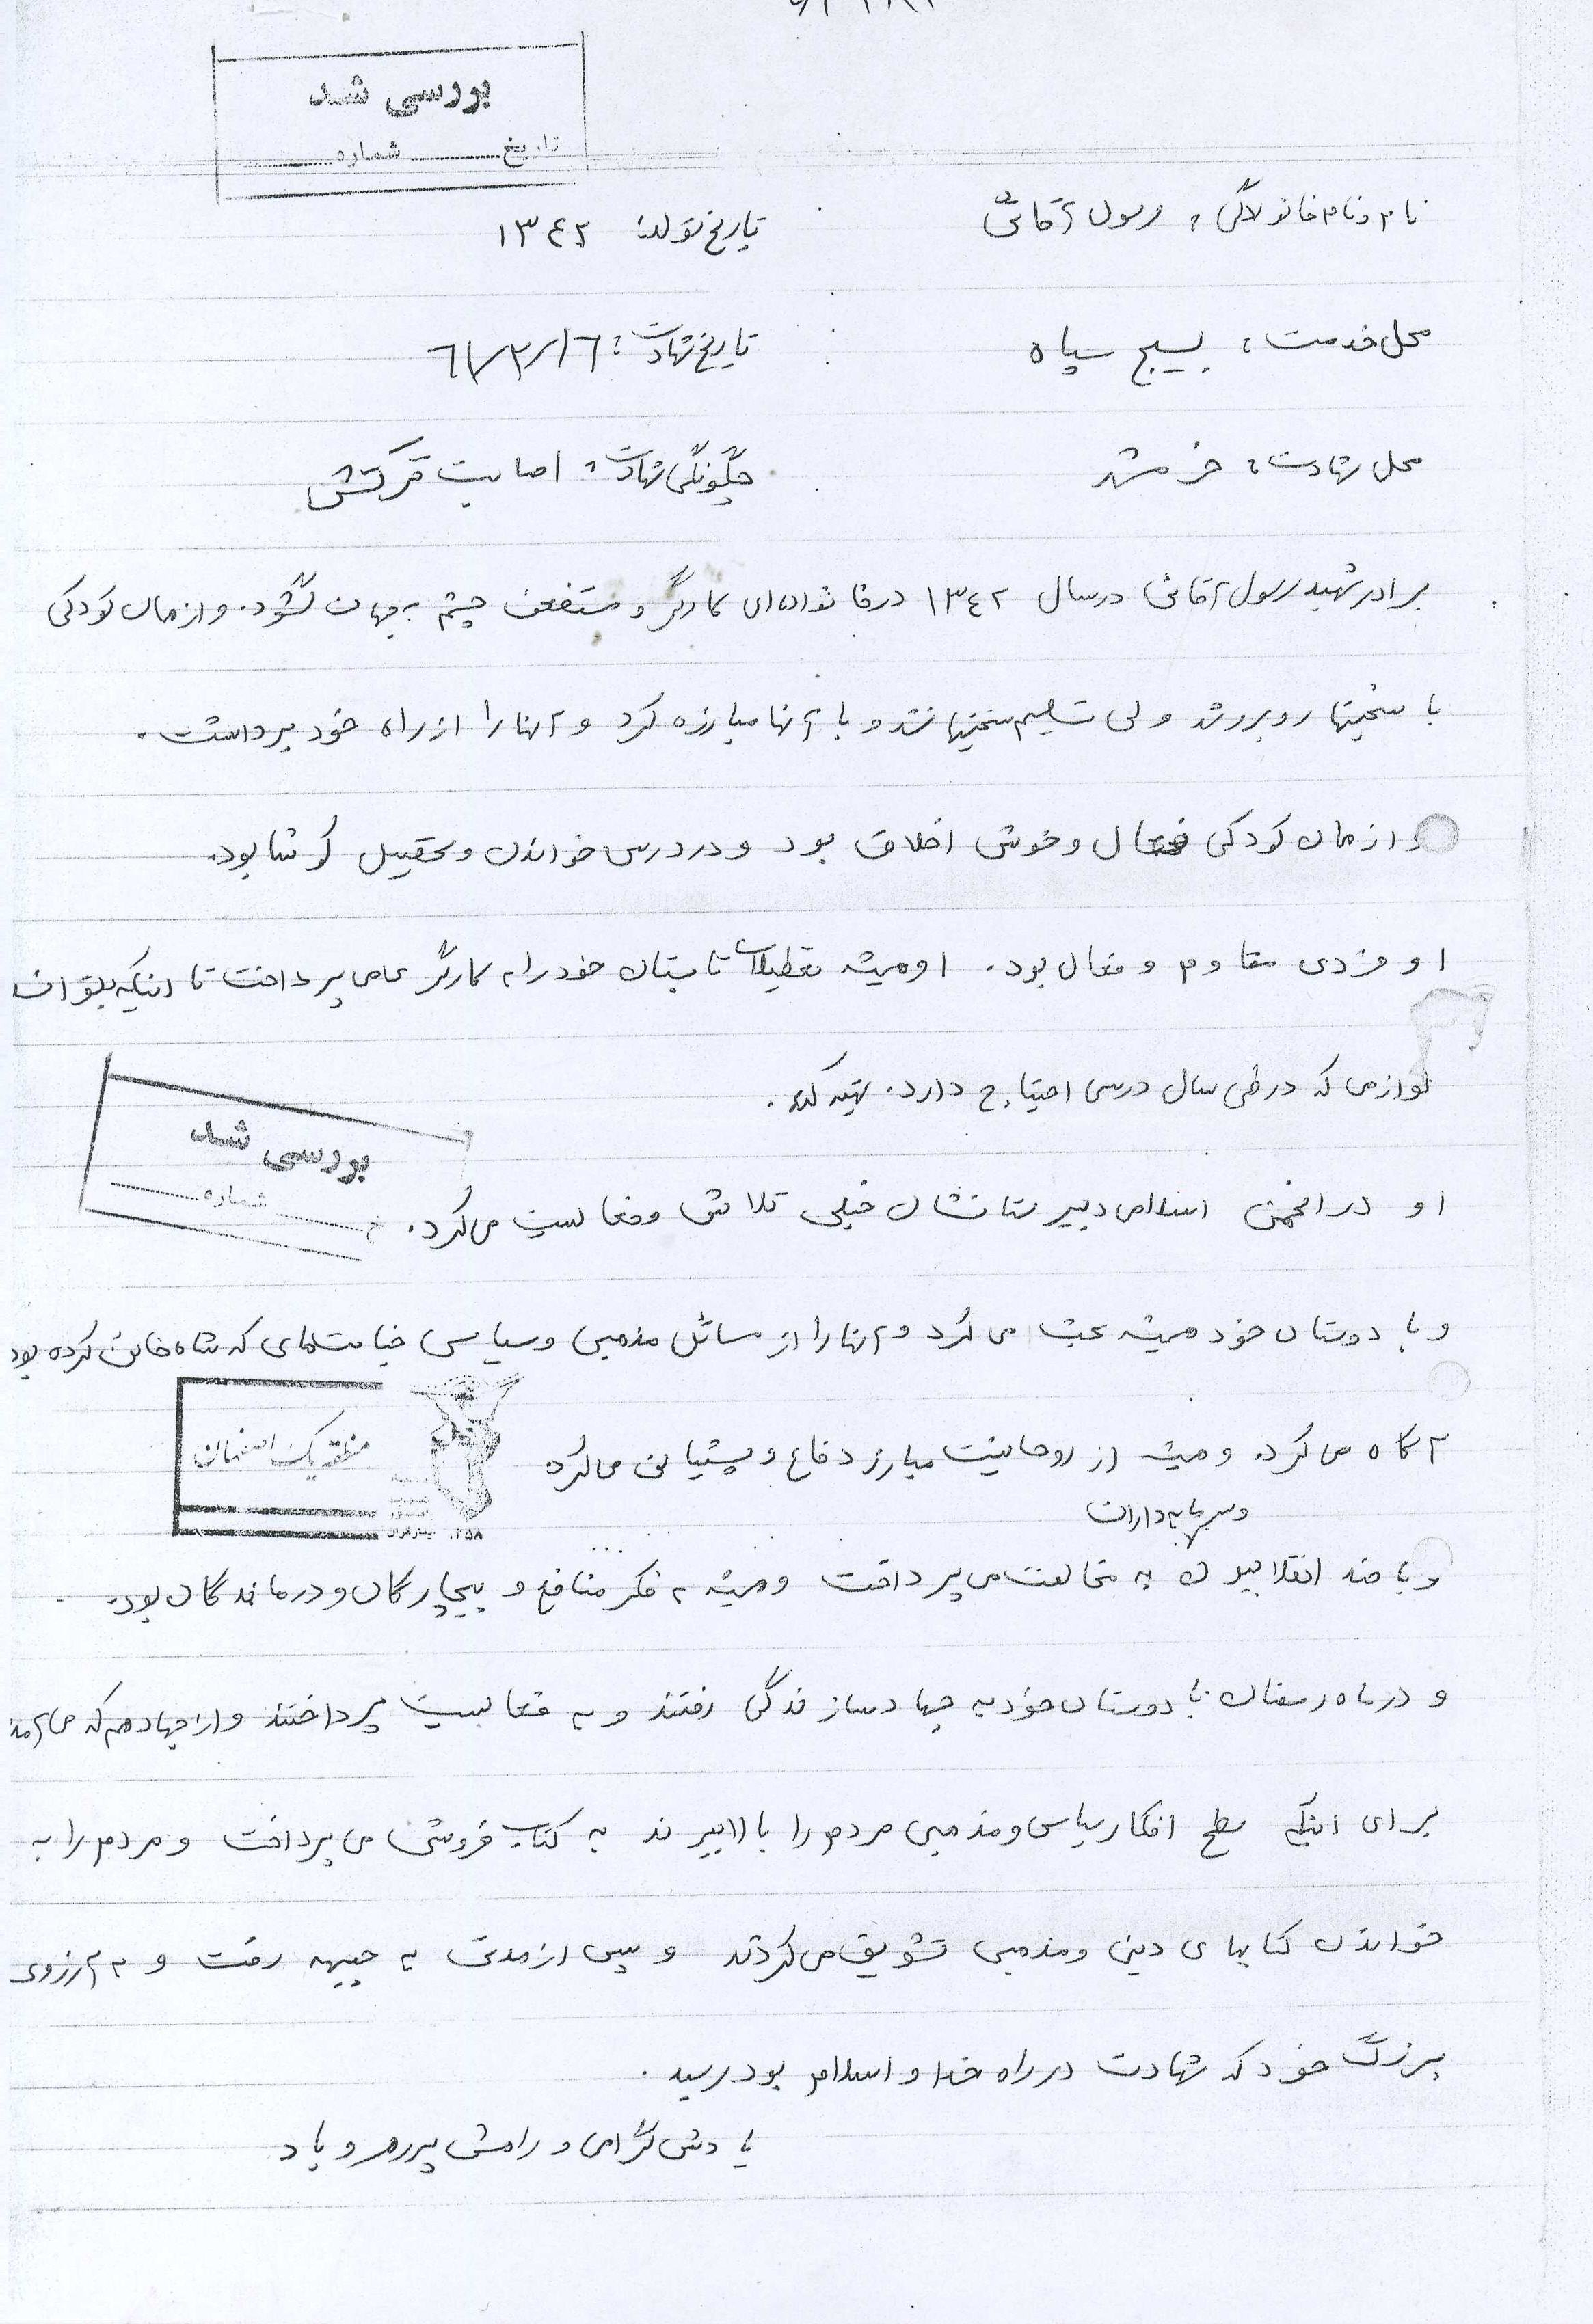 بررسی شد
تاریخ ............ شماره ............
نام و نام خانوادگی: رسول آقائی
تاریخ تولد: ۱۳٤۲
محل خدمت: بسیج سپاه
تاریخ شهادت: ٦۱/۳/۱٦
محل شهادت: خرمشهر
چگونگی شهادت: اصابت ترکش
برادر شهید رسول آقائی در سال ۱۳٤۲ در خانواده‌ای کارگر و مستضعف چشم به جهان گشود. و از همان کودکی
با سختیها روبرو شد ولی تسلیم سختیها نشد و با آنها مبارزه کرد و آنها را از راه خود برداشت.
و از همان کودکی فعال و خوش اخلاق بود و در درس خواندن و تحصیل کوشا بود.
او فردی مقاوم و فعال بود. او همیشه تعطیلات تابستان خود را به کارگری می‌پرداخت تا اینکه بتواند
لوازمی که در طی سال درسی احتیاج دارد. تهیه کند.
بررسی شد
شماره ............
او در انجمن اسلامی دبیرستانشان خیلی تلاش و فعالیت می‌کرد.
و با دوستان خود همیشه بحث می‌کرد و آنها را از مسائل مذهبی و سیاسی خیانت‌های که شاه خائن کرده بود
آگاه می‌کرد. و همیشه از روحانیت مبارز دفاع و پشتیبانی می‌کرد
منطقه یک اصفهان
و سرمایه‌داران
و با ضد انقلابیون به مخالفت می‌پرداخت و همیشه به فکر منافع و بیچارگان و درماندگان بود.
و در ماه رمضان با دوستان خود به جهاد سازندگی رفتند و به فعالیت پرداختند و از جهاد هم که می‌آمد
برای اینکه سطح افکار سیاسی و مذهبی مردم را بالا ببرند به کتاب فروشی می‌پرداخت و مردم را به
خواندن کتابهای دینی و مذهبی تشویق می‌کردند و پس از مدتی به جبهه رفت و به آرزوی
بزرگ خود که شهادت در راه خدا و اسلام بود رسید.
یادش گرامی و راهش پررهرو باد